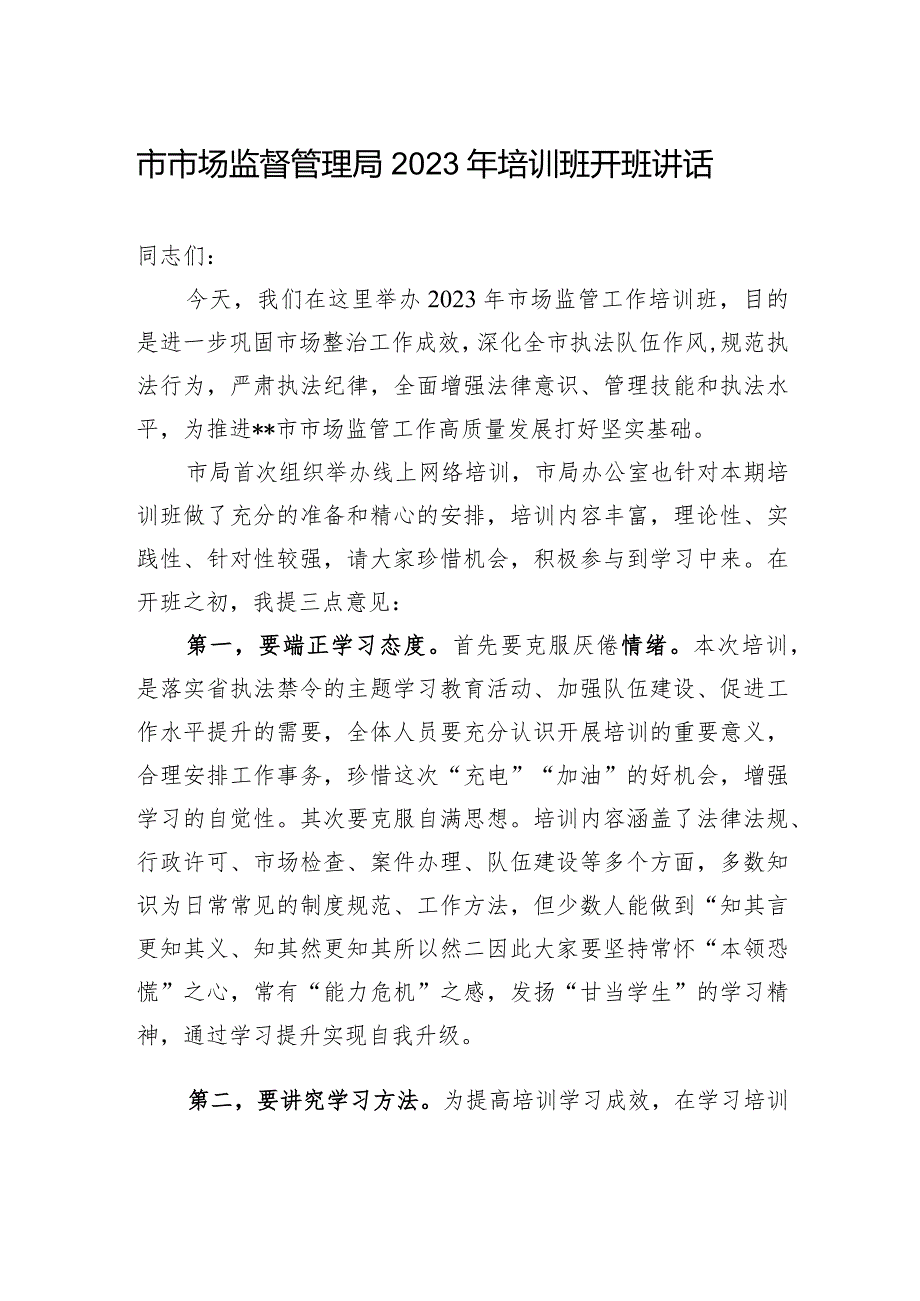 市市场监督管理局 2023 年培训班开班讲话
同志们：
今天，我们在这里举办 2023 年市场监管工作培训班，目的
是进一步巩固市场整治工作成效,深化全市执法队伍作风,规范执
法行为，严肃执法纪律，全面增强法律意识、管理技能和执法水
平，为推进**市市场监管工作高质量发展打好坚实基础。
市局首次组织举办线上网络培训，市局办公室也针对本期培
训班做了充分的准备和精心的安排，培训内容丰富，理论性、实
践性、针对性较强，请大家珍惜机会，积极参与到学习中来。在
开班之初，我提三点意见：
第一，要端正学习态度。首先要克服厌倦情绪。本次培训，
是落实省执法禁令的主题学习教育活动、加强队伍建设、促进工
作水平提升的需要，全体人员要充分认识开展培训的重要意义，
合理安排工作事务，珍惜这次“充电”“加油”的好机会，增强
学习的自觉性。其次要克服自满思想。培训内容涵盖了法律法规、
行政许可、市场检查、案件办理、队伍建设等多个方面，多数知
识为日常常见的制度规范、工作方法，但少数人能做到“知其言
更知其义、知其然更知其所以然二因此大家要坚持常怀“本领恐
慌”之心，常有“能力危机”之感，发扬“甘当学生”的学习精
神，通过学习提升实现自我升级。
第二，要讲究学习方法。为提高培训学习成效，在学习培训